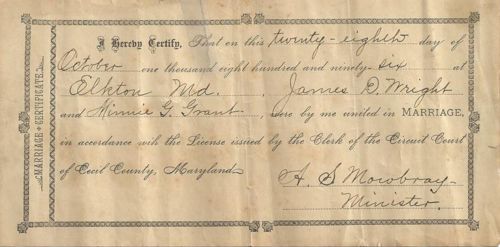 MARRIAGE CERTIFICATE.
I Hereby Certify, That on this twenty-eighth day of
October one thousand eight hundred and ninety-six at
Elkton Md. , James D. Wright
and Minnie G. Grant , were by me united in MARRIAGE,
in accordance with the License issued by the Clerk of the Circuit Court
of Cecil County, Maryland.
A. S. Mowbray-
Minister.